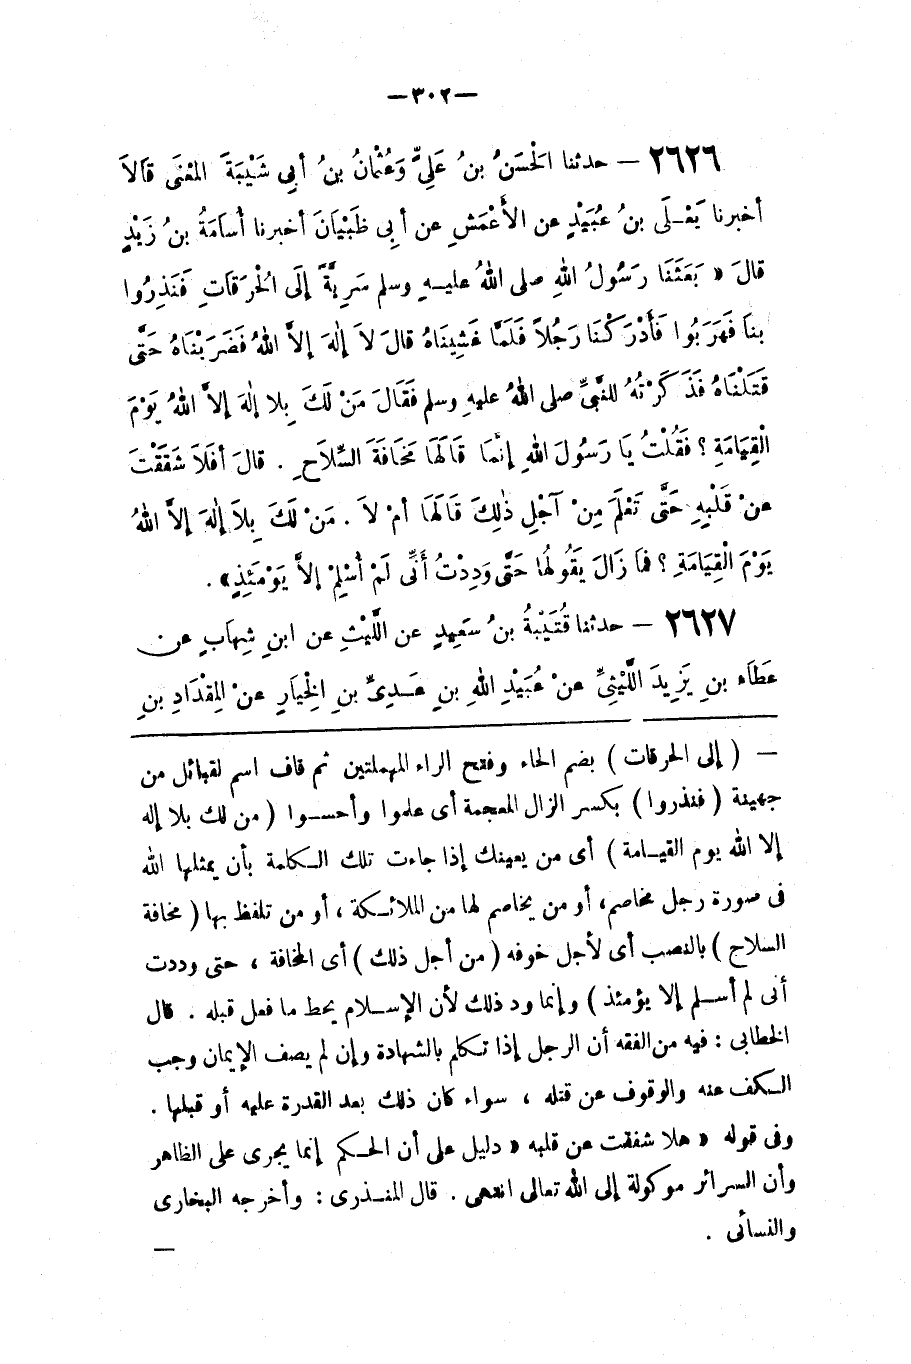 —٣٠٢—
٢٦٢٦ — حدثنا الْحَسَنُ بنُ عَلِيٍّ وَعُثْمَانُ بنُ أبِي شَيْبَةَ المَعْنَى قالاَ
أخبرنا يَعْلَى بنُ عُبَيْدٍ عن الأَعْمَشِ عن أبِى ظَبْيَانَ أخبرنا أُسَامَةُ بنُ زَيْدٍ
قالَ « بَعَثَنَا رَسُولُ اللهِ صلى اللهُ عليهِ وسلم سَرِيَّةً إلَى الْحُرَقَاتِ فَنَذِرُوا
بِنَا فَهَرَبُوا فَأَدْرَكْنَا رَجُلاً فَلَمَّا غَشِينَاهُ قالَ لاَ إلٰهَ إلاَّ اللهُ فَضَرَبْنَاهُ حَتَّى
قَتَلْنَاهُ فَذَكَرْتُهُ للنَّبِيِّ صلى اللهُ عليهِ وسلم فَقَالَ مَنْ لَكَ بِلا إلٰهَ إلاَّ اللهُ يَوْمَ
الْقِيَامَةِ ؟ فَقُلْتُ يَا رَسُولَ اللهِ إنَّمَا قَالَهَا مَخَافَةَ السِّلاَحِ . قالَ أفَلاَ شَقَقْتَ
عنْ قَلْبِهِ حَتَّى تَعْلَمَ مِنْ آجْلِ ذٰلِكَ قَالَهَا أمْ لاَ . مَنْ لَكَ بِلاَ إلٰهَ إلاَّ اللهُ
يَوْمَ الْقِيَامَةِ ؟ فما زَالَ يَقُولُهَا حَتَّى وَدِدْتُ أَنِّى لَمْ أُسْلِمْ إلاَّ يَوْمَئِذٍ» .
٢٦٢٧ — حدثنا قُتَيْبَةُ بنُ سَعِيدٍ عن اللَّيْثِ عن ابنِ شِهَابٍ عن
عَطَاء بنِ يَزِيدَ اللَّيْثِيِّ عنْ عُبَيْدِ اللهِ بنِ عَدِيِّ بنِ الْخِيَارِ عنْ المِقْدَادِ بنِ
— ( إلى الحرقات ) بضم الحاء وفتح الراء المهملتين ثم قاف اسم لقبائل من
جهينة ( فنذروا ) بكسر الزال المعجمة أى علموا وأحسوا ( من لك بلا إله
إلا الله يوم القيامة ) أى من يعينك إذا جاءت تلك الكلمة بأن يمثلها الله
فى صورة رجل مخاصم، أو من يخاصم لها من الملائكة ، أو من تلفظ بها ( مخافة
السلاح ) بالنصب أى لأجل خوفه ( من أجل ذلك ) أى المخافة ، حتى وددت
أنى لم أسلم إلا يؤمئذ ) وإنما ود ذلك لأن الإسلام يحط ما فعل قبله . قال
الخطابى : فيه من الفقه أن الرجل إذا تكلم بالشهادة وإن لم يصف الإيمان وجب
الكف عنه والوقوف عن قتله ، سواء كان ذلك بعد القدرة عليه أو قبلها .
وفى قوله « هلا شفقت عن قلبه « دليل على أن الحكم إنما يجرى على الظاهر
وأن السرائر موكولة إلى الله تعالى انتهى . قال المنذرى : وأخرجه البخارى
والنسائى .
—